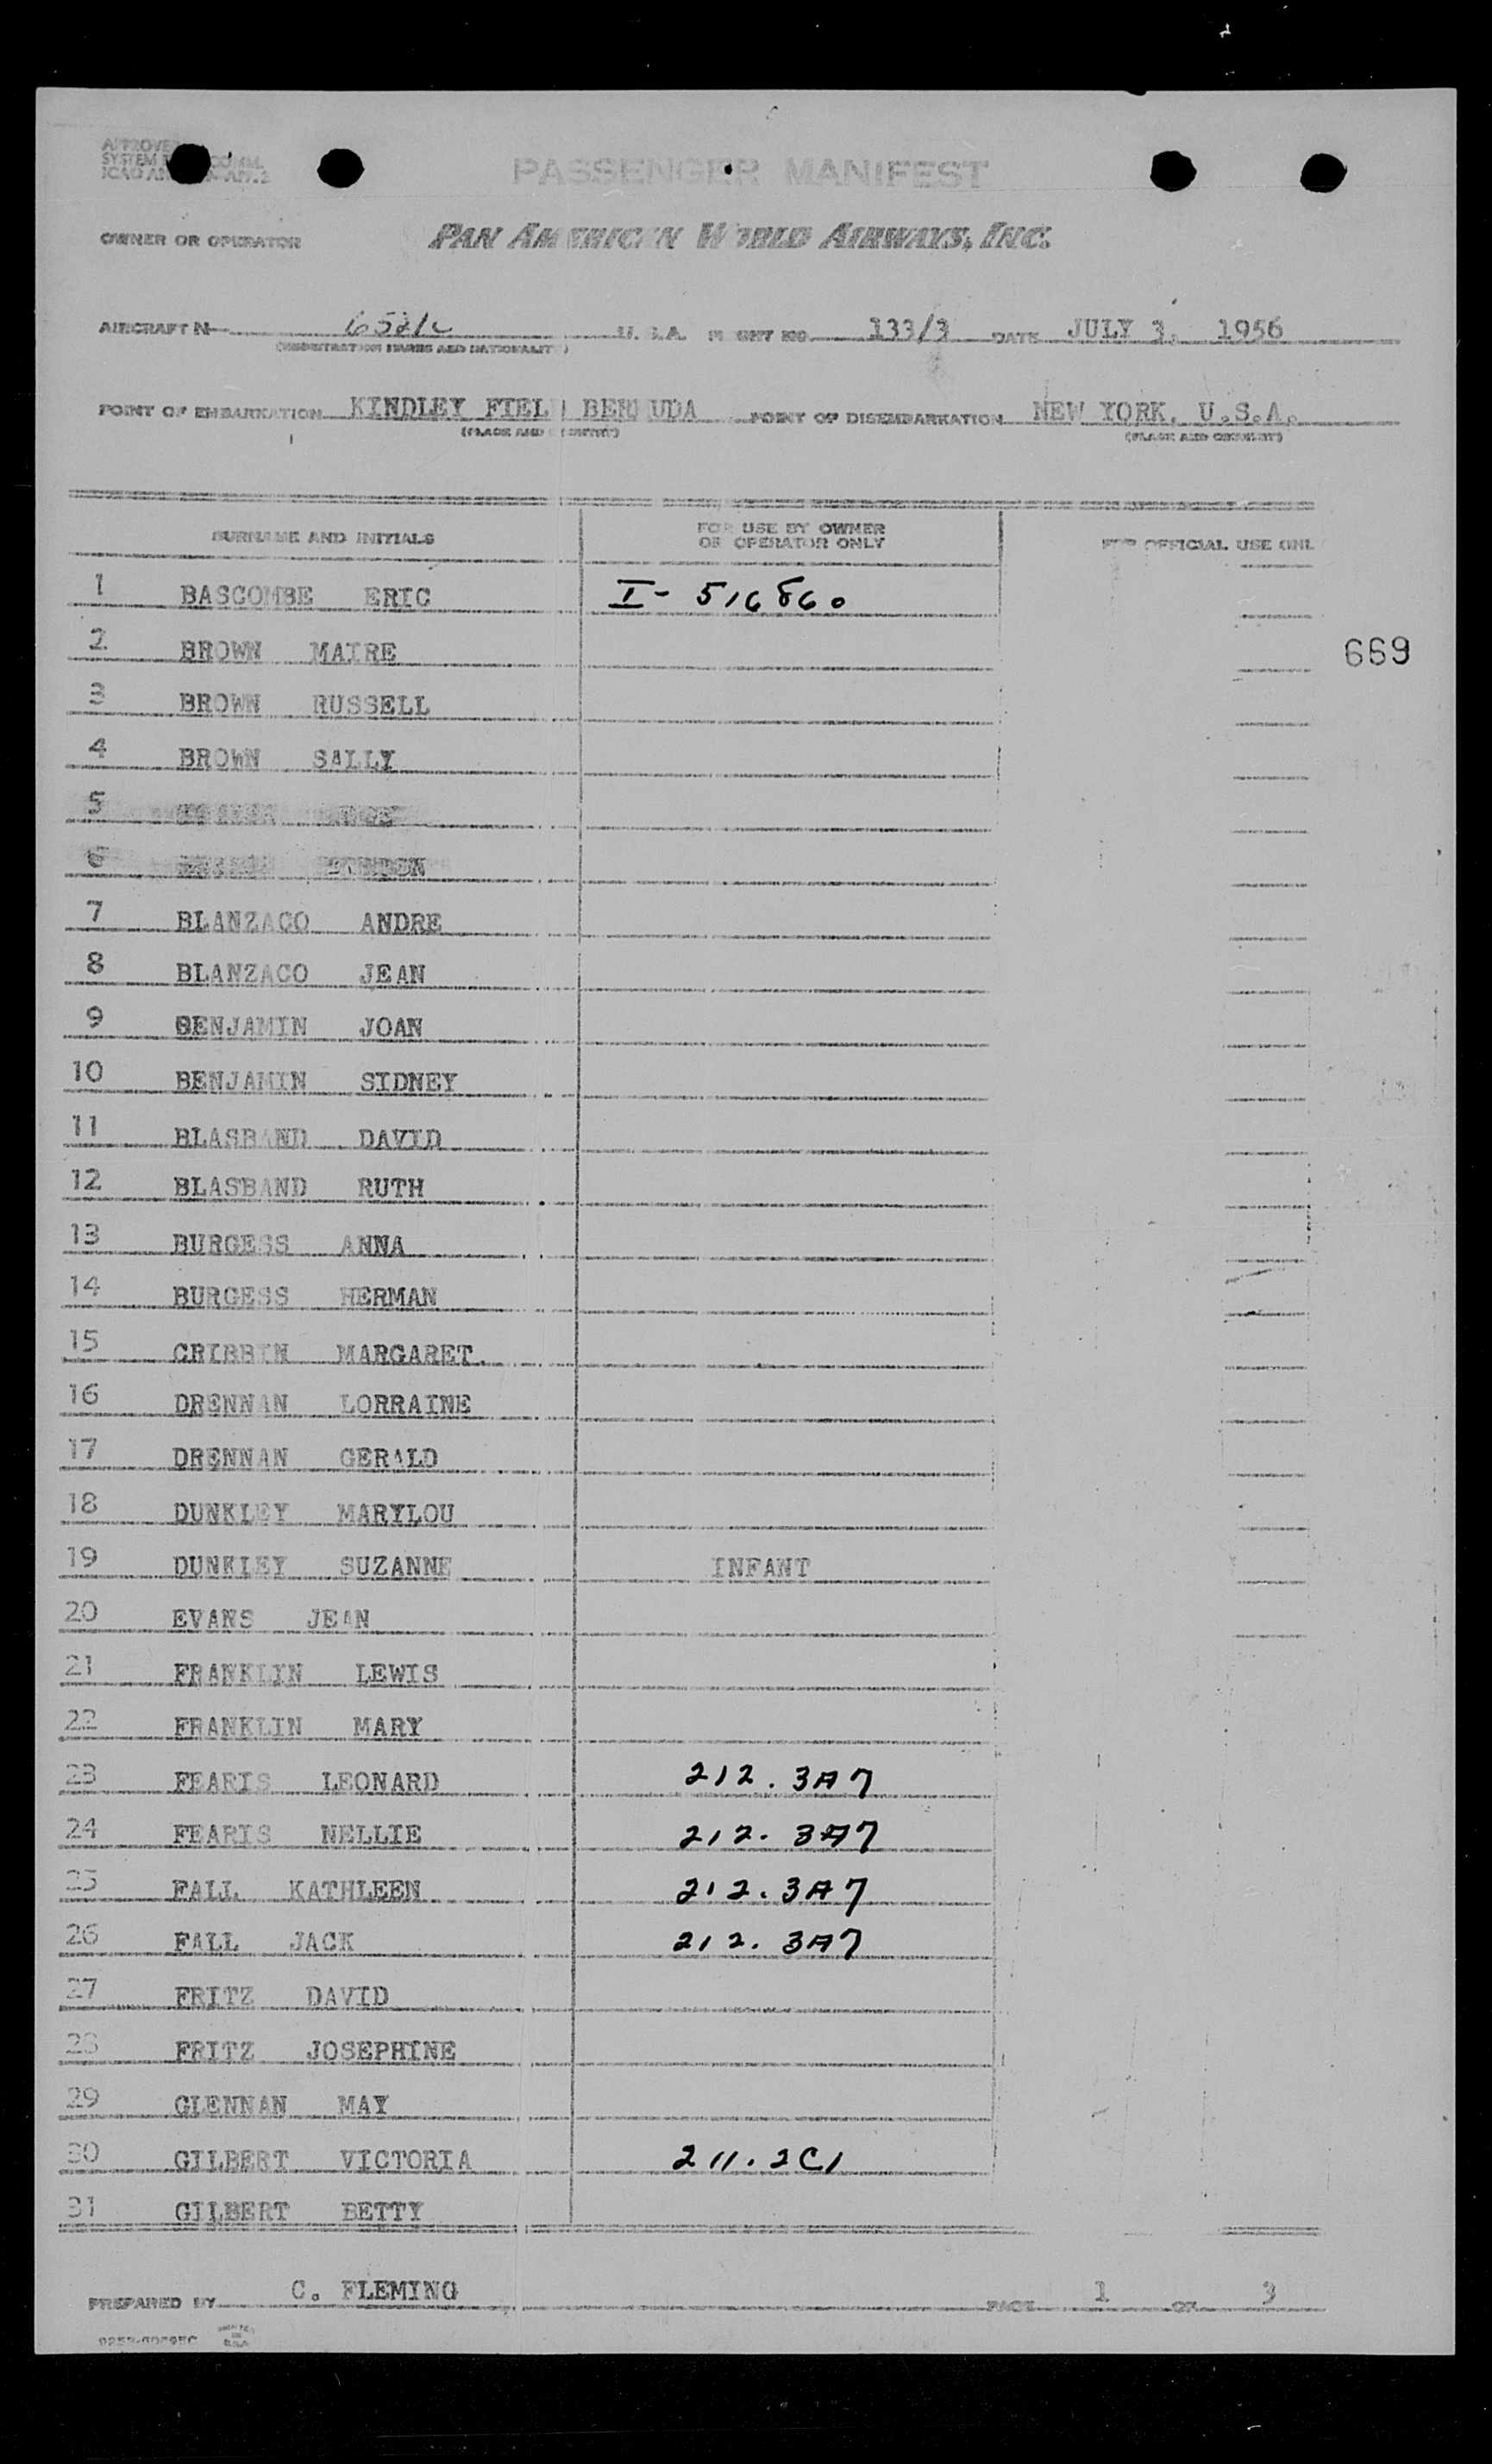 PASSENGER MANIFEST
OWNER OR OPERATOR PAN AMERICAN WORLD AIRWAYS, INC.
AIRCRAFT N U.S.A. FLIGHT NO. 133/3 DATE JULY 3, 1956
(REGISTRATION MARKS AND NATIONALITY)
POINT OF EMBARKATION KINDLEY FIELD BERMUDA POINT OF DISEMBARKATION NEW YORK, U.S.A.
(PLACE AND COUNTRY) (PLACE AND COUNTRY)
SURNAME AND INITIALS FOR USE BY OWNER OR OPERATOR ONLY FOR OFFICIAL USE ONL
1 BASCOMBE ERIC I- 516860
2 BROWN MAIRE
669
3 BROWN RUSSELL
4 BROWN SALLY
5
6
7 BLANZACO ANDRE
8 BLANZACO JEAN
9 BENJAMIN JOAN
10 BENJAMIN SIDNEY
11 BLASBAND DAVID
12 BLASBAND RUTH
13 BURGESS ANNA
14 BURGESS HERMAN
15 CRIBBIN MARGARET.
16 DRENNAN LORRAINE
17 DRENNAN GERALD
18 DUNKLEY MARYLOU
19 DUNKLEY SUZANNE INFANT
20 EVANS JEAN
21 FRANKLIN LEWIS
22 FRANKLIN MARY
23 FEARIS LEONARD 212.3A7
24 FEARIS NELLIE 212.3A7
25 FALL KATHLEEN 212.3A7
26 FALL JACK 212.3A7
27 FRITZ DAVID
28 FRITZ JOSEPHINE
29 GLENNAN MAY
30 GILBERT VICTORIA 211.2C1
31 GILBERT BETTY
PREPARED BY C. FLEMING PAGE 1 OF 3
PRINTED IN U.S.A.